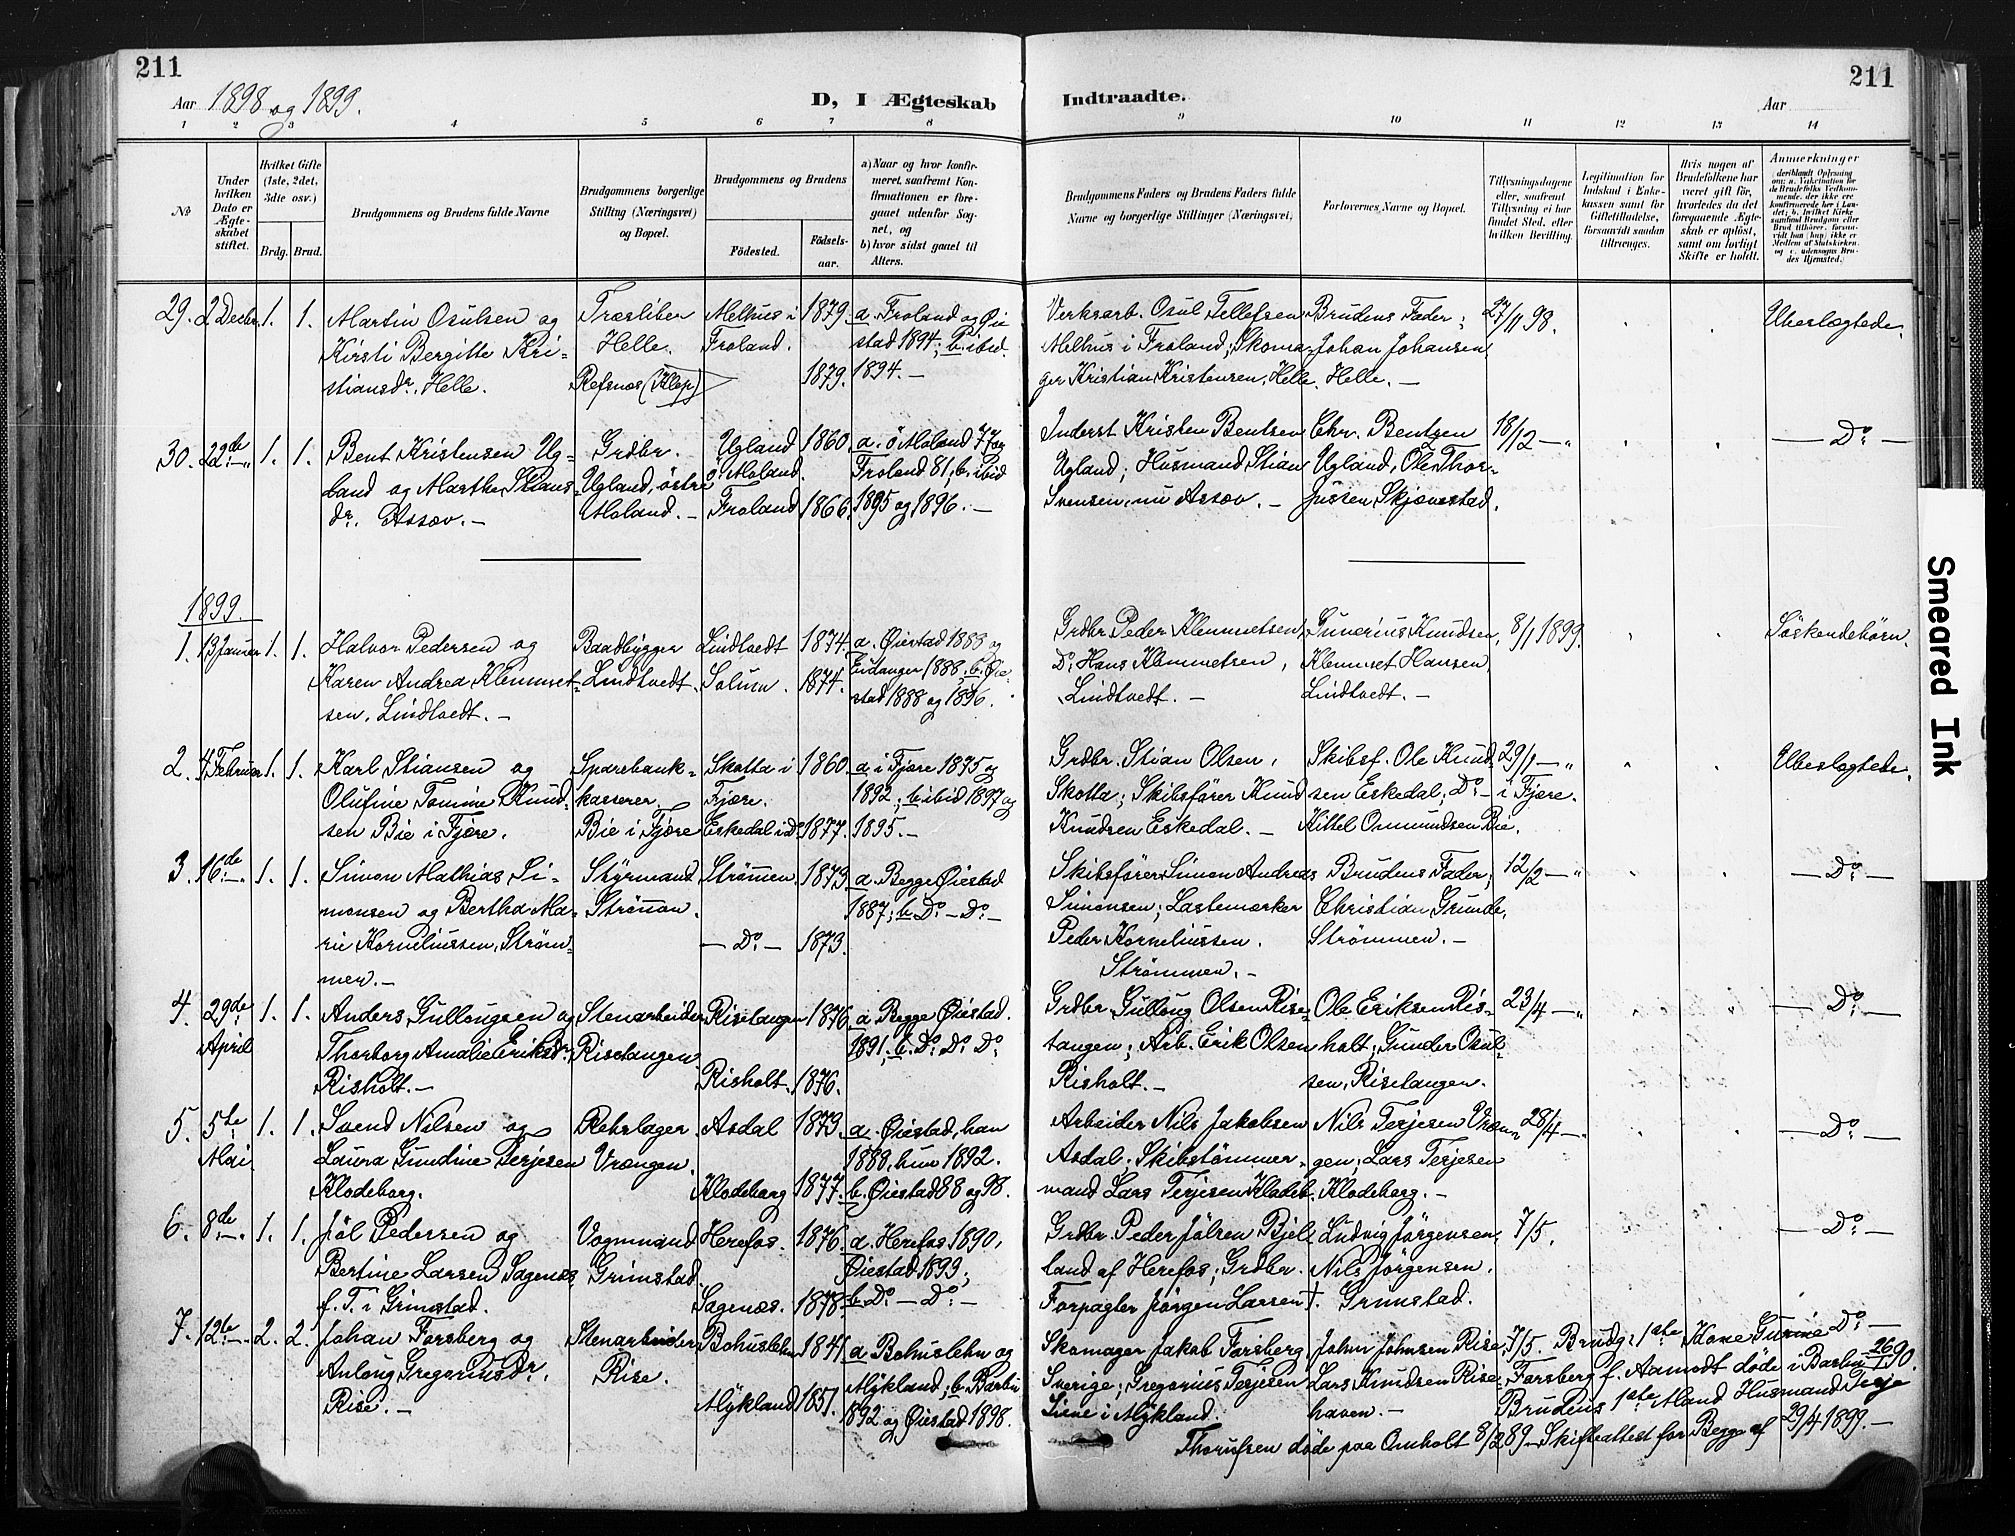 211
211
Aar 1898 og 1899.
D, I Ægteskab
Indtraadte.
Aar
1 2 3 4 5 6 7 8 9 10 11 12 13 14
No
Under hvilken Dato er Ægteskabet stiftet.
Hvilket Gifte (1ste, 2det, 3die osv.)
Brdg. Brud.
Brudgommens og Brudens fulde Navne
Brudgommens borgerlige Stilling (Næringsvei) og Bopæl.
Brudgommens og Brudens
Födested.
Födselsaar.
a) Naar og hvor konfirmeret, saafremt Konfirmationen er foregaaet udenfor Sognet, og
b) hvor sidst gaaet til Alters.
Brudgommens Faders og Brudens Faders fulde Navne og borgerlige Stillinger (Næringsvei)
Forlovernes Navne og Bopæl.
Tillysningsdagene eller, saafremt Tillysning ei har fundet Sted, efter hvilken Bevilling.
Legitimation for Indskud i Enkekassen samt for Giftetilladelse, forsaavidt saadan tiltrænges.
Hvis nogen af Brudefolkene har været gift för, hvorledes da det foregaaende Ægteskab er oplöst, samt om lovligt Skifte er holdt.
Anmerkninger
(deriblandt Oplysning om: a. Vakcination for de Brudefolks Vedkommende, der ikke ere konfirmerede her i Landet; b. hvilket Kirkesamfund Brudgom eller Brud tilhörer, forsaavidt han (hun) ikke er Medlem af Statskirken, og c. udensogns Brudes Hjemsted.)
29. 2 Decbr. 1. 1. Martin Osulsen og
Kirsti Bergitte Kristiansdr. Helle.
Træsliber
Helle.
Refsnes (Klep)
Melhus i
Froland.
1879.
1879.
a. Froland og Øiestad 1894; b. ibid.
1894. —
Verksarb. Osul Tellefsen
Melhus i Froland; Skomager Kristian Kristensen, Helle.
Brudens Fader;
Johan Johansen
Helle. —
27/11 98.
Ubeslægtede.
30. 22de 1. 1. Bent Kristensen Ugland og Marthe Stiansdr. Assev. —
Grdbr.
Ugland, østre
Moland. —
Ugland
ø. Moland.
Froland
1860
1866.
a. ø Moland 77 og
Froland 81; b. ibid
1895 og 1896. —
Inderst Kristen Bentsen
Ugland; Husmand Stian
Svensen, nu Assev. —
Chr. Bentzen
Ugland, Ole Thorjussen Skjævestad.
18/12 — „
— Do —
1899.
1. 13 Januar 1. 1. Halvor Pedersen og
Karen Andrea Klemmetsen, Lindtvedt. —
Baadbygger
Lindtvedt.
Lindtvedt
Solum.
1874.
1874.
a. Øiestad 1888 og
Eidanger 1888; b. Øiestad 1888 og 1896.
Grdbr. Peder Klemmetsen,
Do. Hans Klemmetsen,
Lindtvedt. —
Gunerius Knudsen,
Klemmet Hansen,
Lindtvedt. —
8/1 1899.
Søskendebørn.
2. 4 Februar 1. 1. Karl Stiansen og
Olufine Tomine Knudsen Bie i Fjære.
Sparebankkasserer.
Bie i Fjære
Skotta i
Fjære.
Eskedal i Do
1860.
1877.
a. i Fjære 1875 og
1892; b. ibid 1897 og
1895. —
Grdbr. Stian Olsen,
Skotta; Skibsfører Knud
Knudsen Eskedal. —
Skibsf. Ole Knudsen Eskedal; Do — i Fjære.
Kittel Ommundsen Bie.
29/1 — „
Ubeslægtede.
3. 16de 1. 1. Simon Mathias Simonsen og Bertha Marie Korneliussen, Strømmen. —
Styrmand
Strømmen.
Strømmen.
— Do —
1873
1873.
a. Begge Øiestad
1887; b. Do — Do —
Skibsfører Simon Andreas
Simonsen; Lastemærker
Peder Korneliussen.
Strømmen. —
Brudens Fader;
Christian Grunde,
Strømmen. —
12/2 — „
— Do —
4. 29de April 1. 1. Anders Gullougsen og
Thorborg Amalie Eriksdr.
Risholt. —
Stenarbeider
Risetangen.
Risetangen
Risholt.
1876
1876.
a. Begge Øiestad.
1891; b. Do Do Do
Grdbr. Gulloug Olsen Risetangen; Arb. Erik Olsen
Risholt. —
Ole Eriksen Risholt; Gunder Osulsen, Risetangen.
23/4 — „
— Do —
5. 5te Mai 1. 1. Svend Nilsen og
Laura Gundine Terjesen
Klodeborg.
Rebslager
Vrængen.
Asdal
Klodeborg
1873.
1877.
a. Øiestad, han
1888, hun 1892.
b. Øiestad 88 og 98.
Arbeider Nils Jakobsen
Asdal; Skibstømmermand Lars Terjesen Klodeb.
Nils Terjesen Vrængen; Lars Terjesen
Klodeborg. —
28/4 — „
— Do —
6. 8de 1. 1. Jøl Pedersen og
Bertine Larsen Sagenæs
f. T. i Grimstad.
Vognmand
Grimstad.
Herefos.
Sagenæs.
1876.
1878
a. Herefos 1890,
Øiestad 1893;
b. Do — Do —
Grdbr. Peder Jølsen Bjelland af Herefos; Grdbr.
Forpagter Jørgen Larsen †.
Ludvig Jørgensen,
Nils Jørgensen.
Grimstad.
7/5.
— Do —
7. 12te 2. 2. Johan Forsberg og
Anloug Gregoriusdr.
Rise. —
Stenarbeider
Rise.
Bohuslehn
Mykland
1841
1851.
a. Bohuslehn og
Mykland; b. Barbu
1892 og Øiestad 1898.
Skomager Jakob Forsberg,
Sverige; Gregorius Terjesen
Linne i Mykland.
John Johnsen Rise;
Lars Knudsen Risehaven. —
7/5. Brudg: 1ste Kone Gurine Do —
Forsberg f. Aamodt døde i Barbu 26/1 90.
Brudens 1ste Mand Husmand Terje
Thorufsen døde paa Omholt 8/2 89. — Skifteattest for Begge af 29/4 1899. —
Smeared Ink